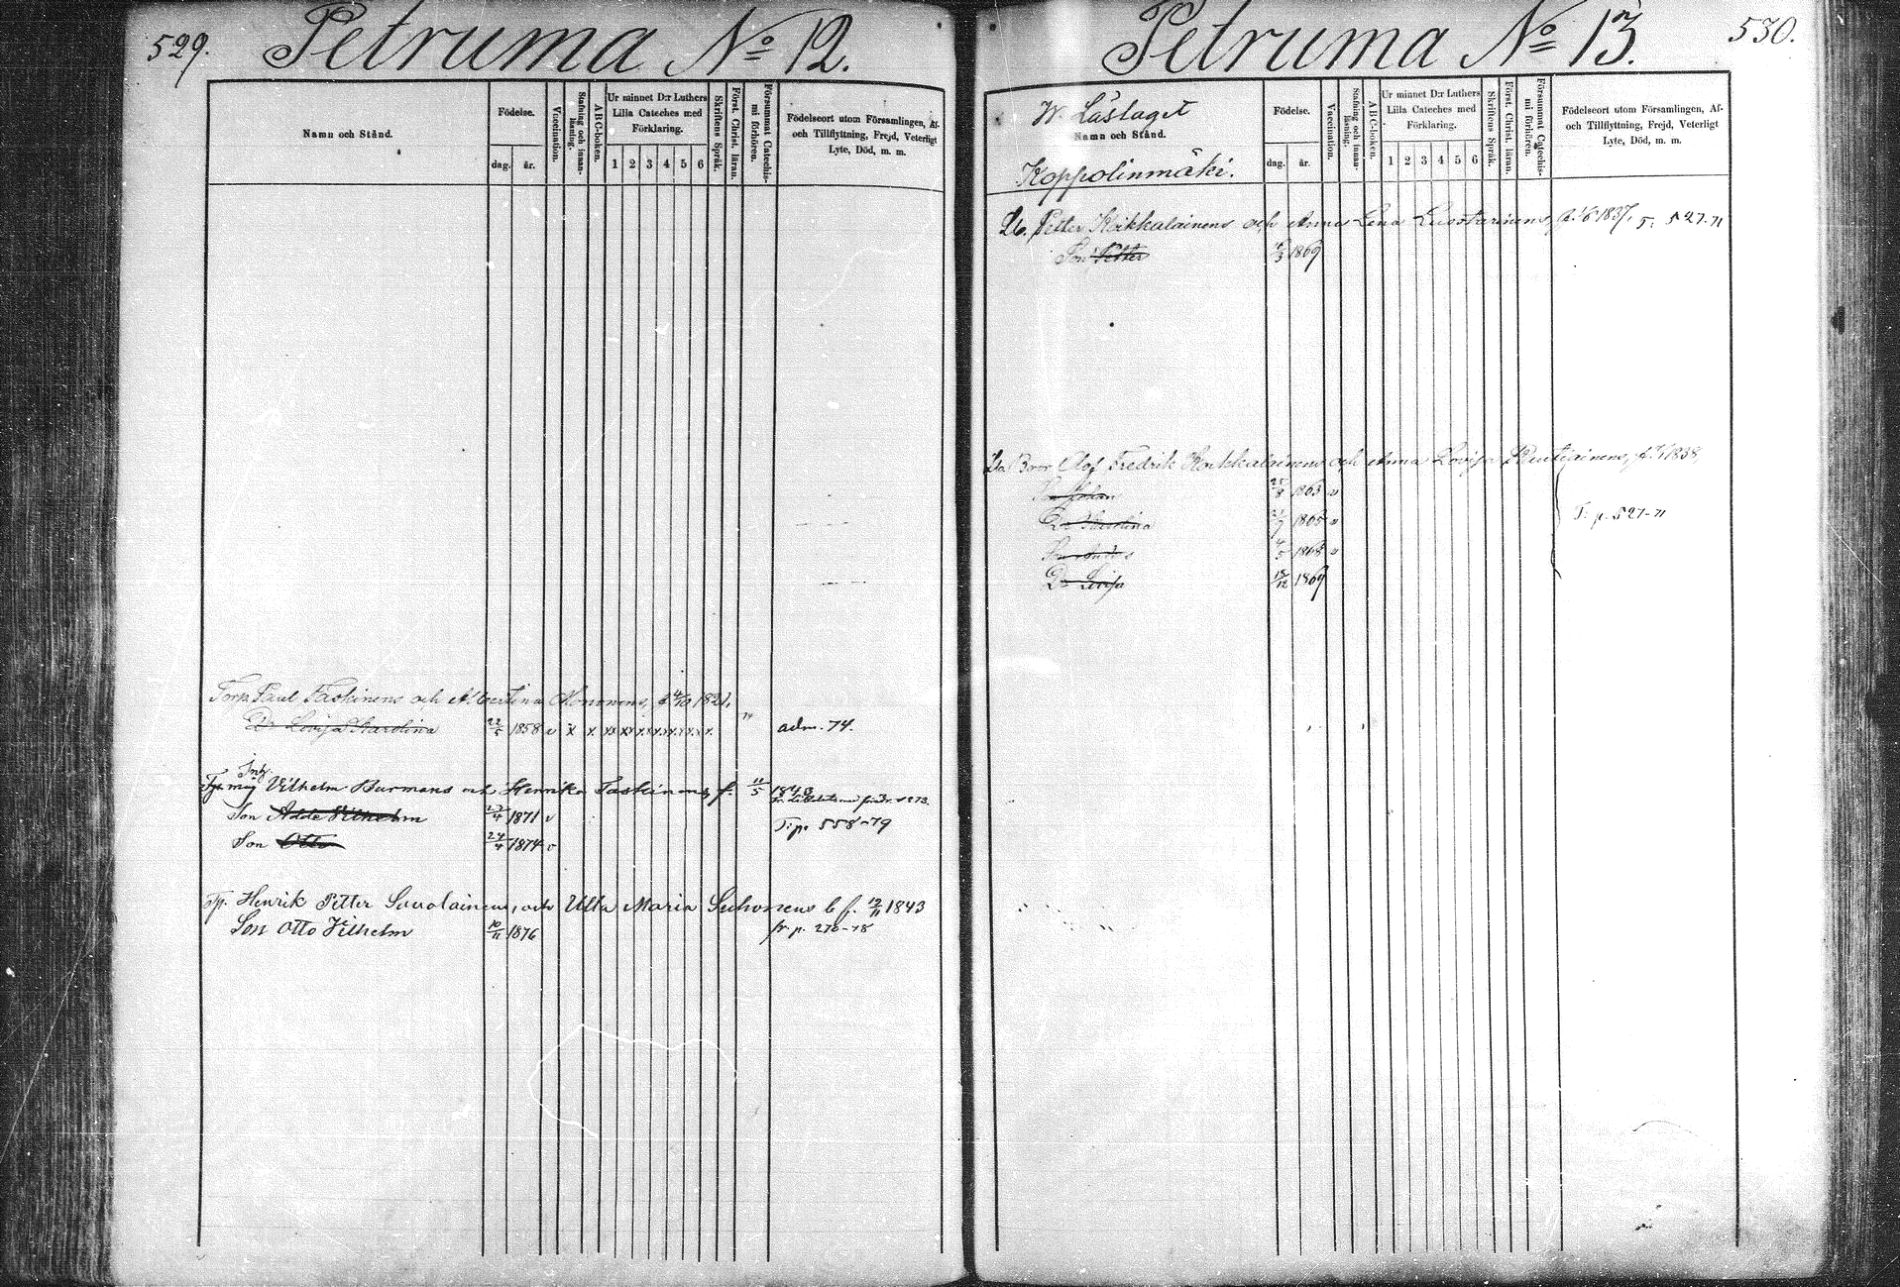 529.
Petruma No 12.
Namn och Stånd.
Födelse.
dag. år.
Vaccination.
Stafning och innan-läsning.
ABC-boken.
Ur minnet D:r Luthers
Lilla Cateches med
Förklaring.
1 2 3 4 5 6
Skriftens Språk.
Först. Christ. läran.
Försummat Catechis-mi förhören.
Födelseort utom Församlingen, Af-
och Tillflyttning, Frejd, Veterligt
Lyte, Död, m. m.
Torp. Paul Taskinens och Albertina f. 4/10 1821.
Dr Lovisa Karolina 22/5 1858 v x x xx xx x x x x x x x. adm. 74.
Vilhelm Burmans och Henrika Taskinens f. 11/5 1843
Son Vilhelm 27/4 1871 v
T. p. 558-79
Son Otto 24/4 1874 v
Tp. Henrik Petter Savolainens, och Ulla Maria Suhonens b f. 12/11 1843
Son Otto Vilhelm 10/11 1876 fr. p. 276-78
530.
Petruma No 13.
W. Läslaget
Namn och Stånd.
Koppolinmäki.
Födelse.
dag. år.
Vaccination.
Stafning och innan-läsning.
ABC-boken.
Ur minnet D:r Luthers
Lilla Cateches med
Förklaring.
1 2 3 4 5 6
Skriftens Språk.
Först. Christ. läran.
Försummat Catechis-mi förhören.
Födelseort utom Församlingen, Af-
och Tillflyttning, Frejd, Veterligt
Lyte, Död, m. m.
Petter Koikkalainens och Anna Lena Luostarinens, 1837, 527-71
Son Petter 1869
Bror Olof Fredrik Koikkalainens och Anna Lovisa 1838,
Son Johan 25/8 1863 v
Dr Karolina 1865 v
T. p. 527-71
4/5 1868 v
Dr Lovisa 18/12 1869